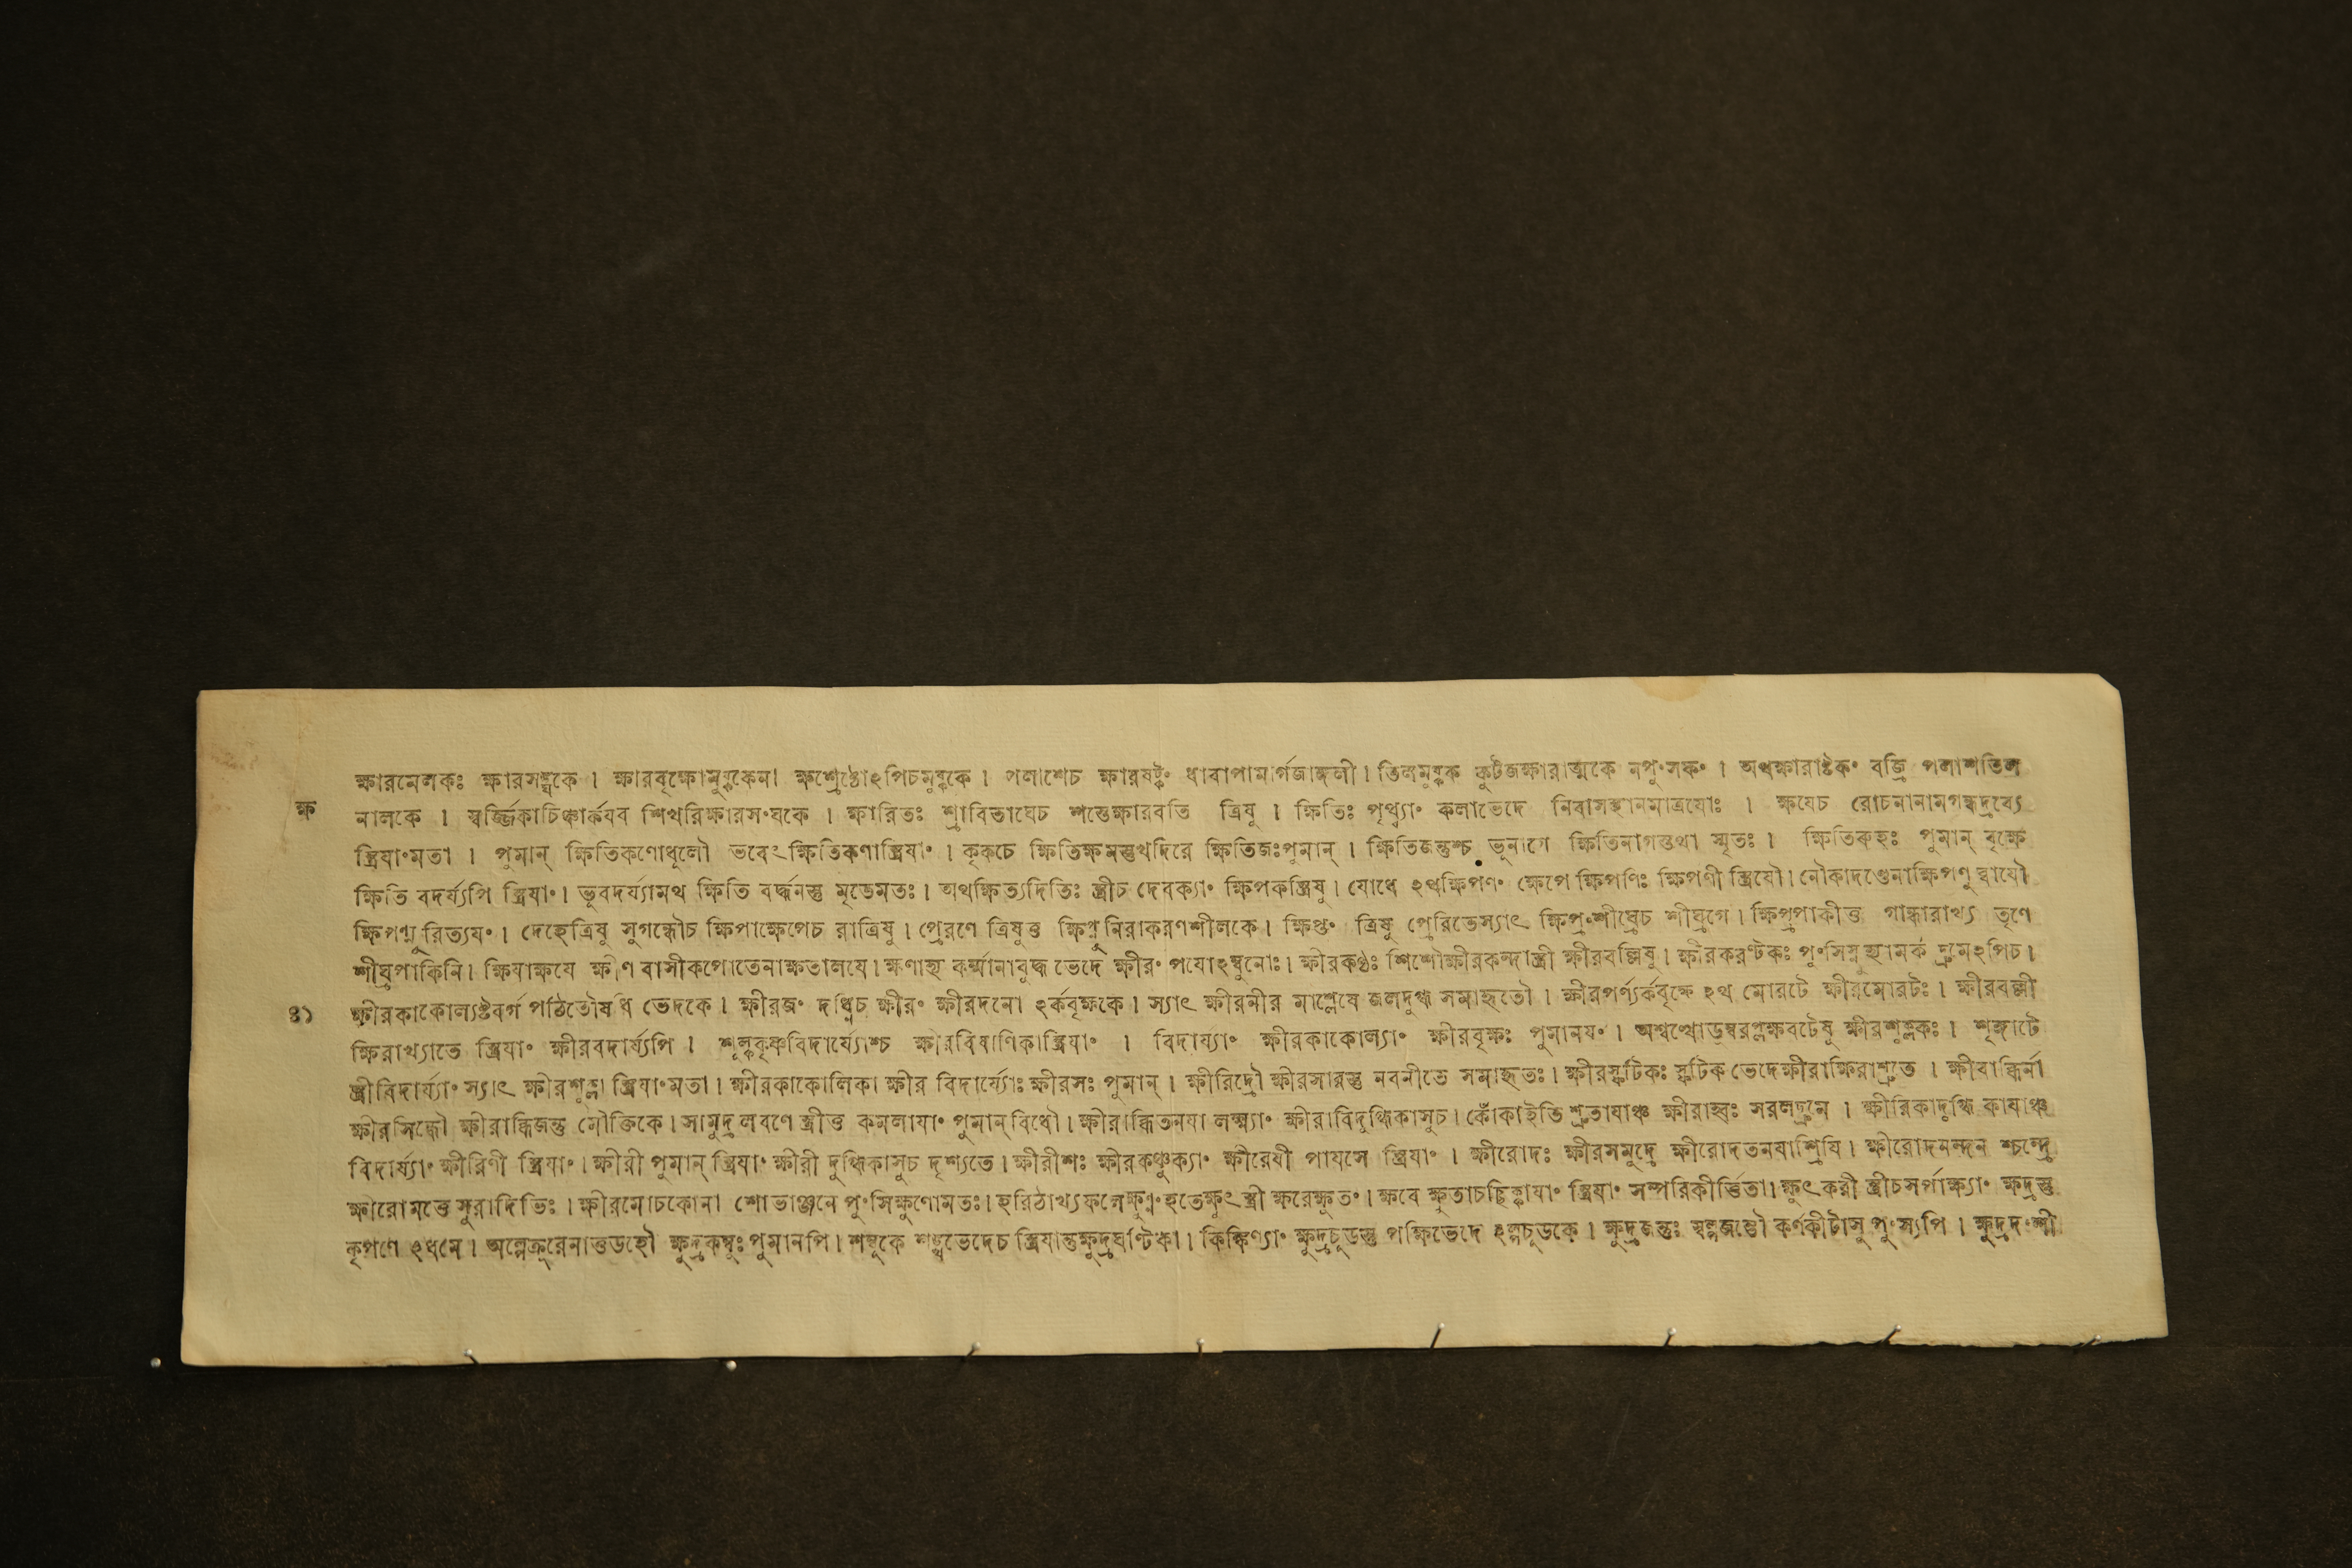 ক্ষারমেলকঃ ক্ষারসঙ্ঘকে । ক্ষারবৃক্ষোমুষ্ককেনা ক্ষশ্রেষ্ঠোঽপিচমুষ্ককে । পলাশেচ ক্ষারষট্কং ধাবাপামার্গজাঙ্গলী । তিলমুষ্কক কুটজক্ষারাত্মকে নপুংসকং । অথক্ষারাষ্টকং বজ্রি পলাশতিল
ক্ষ
নালকে । স্বর্জ্জিকাচিঞ্চার্কযব শিখরিক্ষারসংঘকে । ক্ষারিতঃ শ্রাবিতাঘেচ শস্তেক্ষারবতি ত্রিষু । ক্ষিতিঃ পৃথ্ব্যাং কলাভেদে নিবাসস্থানমাত্রযোঃ । ক্ষযেচ রোচনানামগন্ধদ্রব্যে
স্ত্রিযাংমতা । পুমান্ ক্ষিতিকণোধূলৌ ভবেৎক্ষিতিকণাস্ত্রিযাং । কৃকচে ক্ষিতিক্ষমস্তুখদিরে ক্ষিতিজঃপুমান্ । ক্ষিতিজন্তুশ্চ ভূনাগে ক্ষিতিনাগস্তথা স্মৃতঃ । ক্ষিতিরুহঃ পুমান্ বৃক্ষে
ক্ষিতি বদর্য্যপি স্ত্রিযাং । ভূবদর্য্যামথ ক্ষিতি বর্দ্ধনস্তু মৃতেমতঃ । অথক্ষিত্যদিতিঃ স্ত্রীচ দেবক্যাং ক্ষিপকস্ত্রিষু । যোধে ঽথক্ষিপণং ক্ষেপে ক্ষিপণিঃ ক্ষিপণী স্ত্রিযৌ । নৌকাদণ্ডেনাক্ষিপণু র্ব্বাযৌ
ক্ষিপণ্যু রিত্যযং । দেহেত্রিষু সুগন্ধৌচ ক্ষিপাক্ষেপেচ রাত্রিষু । প্রেরণে ত্রিষুত্ত ক্ষিপ্নু নিরাকরণশীলকে । ক্ষিপ্তং ত্রিষু প্রেরিতেস্যাৎ ক্ষিপ্রংশীঘ্রেচ শীঘ্রগে । ক্ষিপ্রপাকীত্ত গান্ধারাখ্য তৃণে
শীঘ্রপাকিনি । ক্ষিযাক্ষযে ক্ষীণ বাসীকপোতেনাক্ষতালযে । ক্ষীরং পযোঽম্বুনোঃ । ক্ষীরকণ্ঠঃ শিশৌক্ষীরকন্দাস্ত্রী ক্ষীরবল্লিষু । ক্ষীরকরণ্টকঃ দ্রুমেঽপিচ ।
৪১
ক্ষীরকাকোল্যষ্টবর্গ পঠিতৌষধি ভেদকে । ক্ষীরজং দধ্নিচ ক্ষীরং ক্ষীরদনো ঽর্কবৃক্ষকে । স্যাৎ ক্ষীরনীর মাশ্লেষে জলদুগ্ধ সমাহৃতৌ । ক্ষীরপর্ণ্যর্কবৃক্ষে ঽথ মোরটে ক্ষীরমোরটঃ । ক্ষীরবল্লী
ক্ষিরাখ্যাতে স্ত্রিযাং ক্ষীরবদার্য্যপি । শুল্ককৃষ্ণবিদার্য্যোশ্চ ক্ষীরবিষাণিকাস্ত্রিযাং । বিদায্যাং ক্ষীরকাকোল্যাং ক্ষীরবৃক্ষঃ পুমানযং । অশ্বত্থোডুম্বরপ্লক্ষবটেষু ক্ষীরশুক্লকঃ । শৃঙ্গাটে
স্ত্রীবিদার্য্যাং স্যাৎ ক্ষীরশুক্লা স্ত্রিযাংমতা । ক্ষীরকাকোলিকা ক্ষীর বিদার্য্যোঃ ক্ষীরসঃ পুমান্ । ক্ষীরিদ্রৌ ক্ষীরসারস্তু নবনীতে সমাহৃতঃ । ক্ষীরস্ফটিকঃ স্ফটিক ভেদেক্ষীরাক্ষিরাশ্রুতে । ক্ষীবাব্ধির্না
ক্ষীরসিন্ধৌ ক্ষীরাব্ধিজন্তু মৌক্তিকে । সামুদ্রলবণে স্ত্রীত্ত কমলাযাং পুমান্ বিধৌ । ক্ষীরাব্ধিতনযা লক্ষ্ম্যাং ক্ষীরাবিদুগ্ধিকাসুচ । কোঁকাইতি শ্রুতাযাঞ্চ ক্ষীরাহ্বঃ সরলদ্রুমে । ক্ষীরিকাদুগ্ধি কাযাঞ্চ
বিদার্য্যাং ক্ষীরিণী স্ত্রিযাং । ক্ষীরী পুমান্ স্ত্রিযাং ক্ষীরী দুগ্ধিকাসুচ দৃশ্যতে । ক্ষীরীশঃ ক্ষীরকঞ্চুক্যাং ক্ষীরেযী পাযসে স্ত্রিযাং । ক্ষীরোদঃ ক্ষীরসমুদ্রে ক্ষীরোদতনযাশ্রিযি । ক্ষীরোদনন্দন শ্চন্দ্রে
ক্ষীরোমত্তে সুরাদিভিঃ । ক্ষীরমোচকোনা শোভাঞ্জনে পুংসিক্ষুণোমতঃ । হরিঠাখ্যফলেক্ষুণ্নংহতেক্ষুৎ স্ত্রী ক্ষরেক্ষুতং । ক্ষবে ক্ষুতাচচ্ছিক্কাযাং স্ত্রিযাং সম্পরিকীর্ত্তিতা । ক্ষুৎকরী স্ত্রীচসর্পাক্ষ্যাং ক্ষুদ্রস্তু
কৃপণে ঽধমে । অল্পেক্রূরেনাত্তডহৌ ক্ষুদ্রকম্বুঃ পুমানপি । শম্বুকে শঙ্খভেদেচ স্ত্রিযান্তুক্ষুদ্রঘণ্টিকা । কিঙ্কিণ্যাং ক্ষুদ্রচূডস্তু পক্ষিভেদে ঽল্পচূডকে । ক্ষুদ্রজন্তুঃ স্বল্পজন্তৌ কর্ণকীটাসু পুংস্যপি । ক্ষুদ্রদংশী